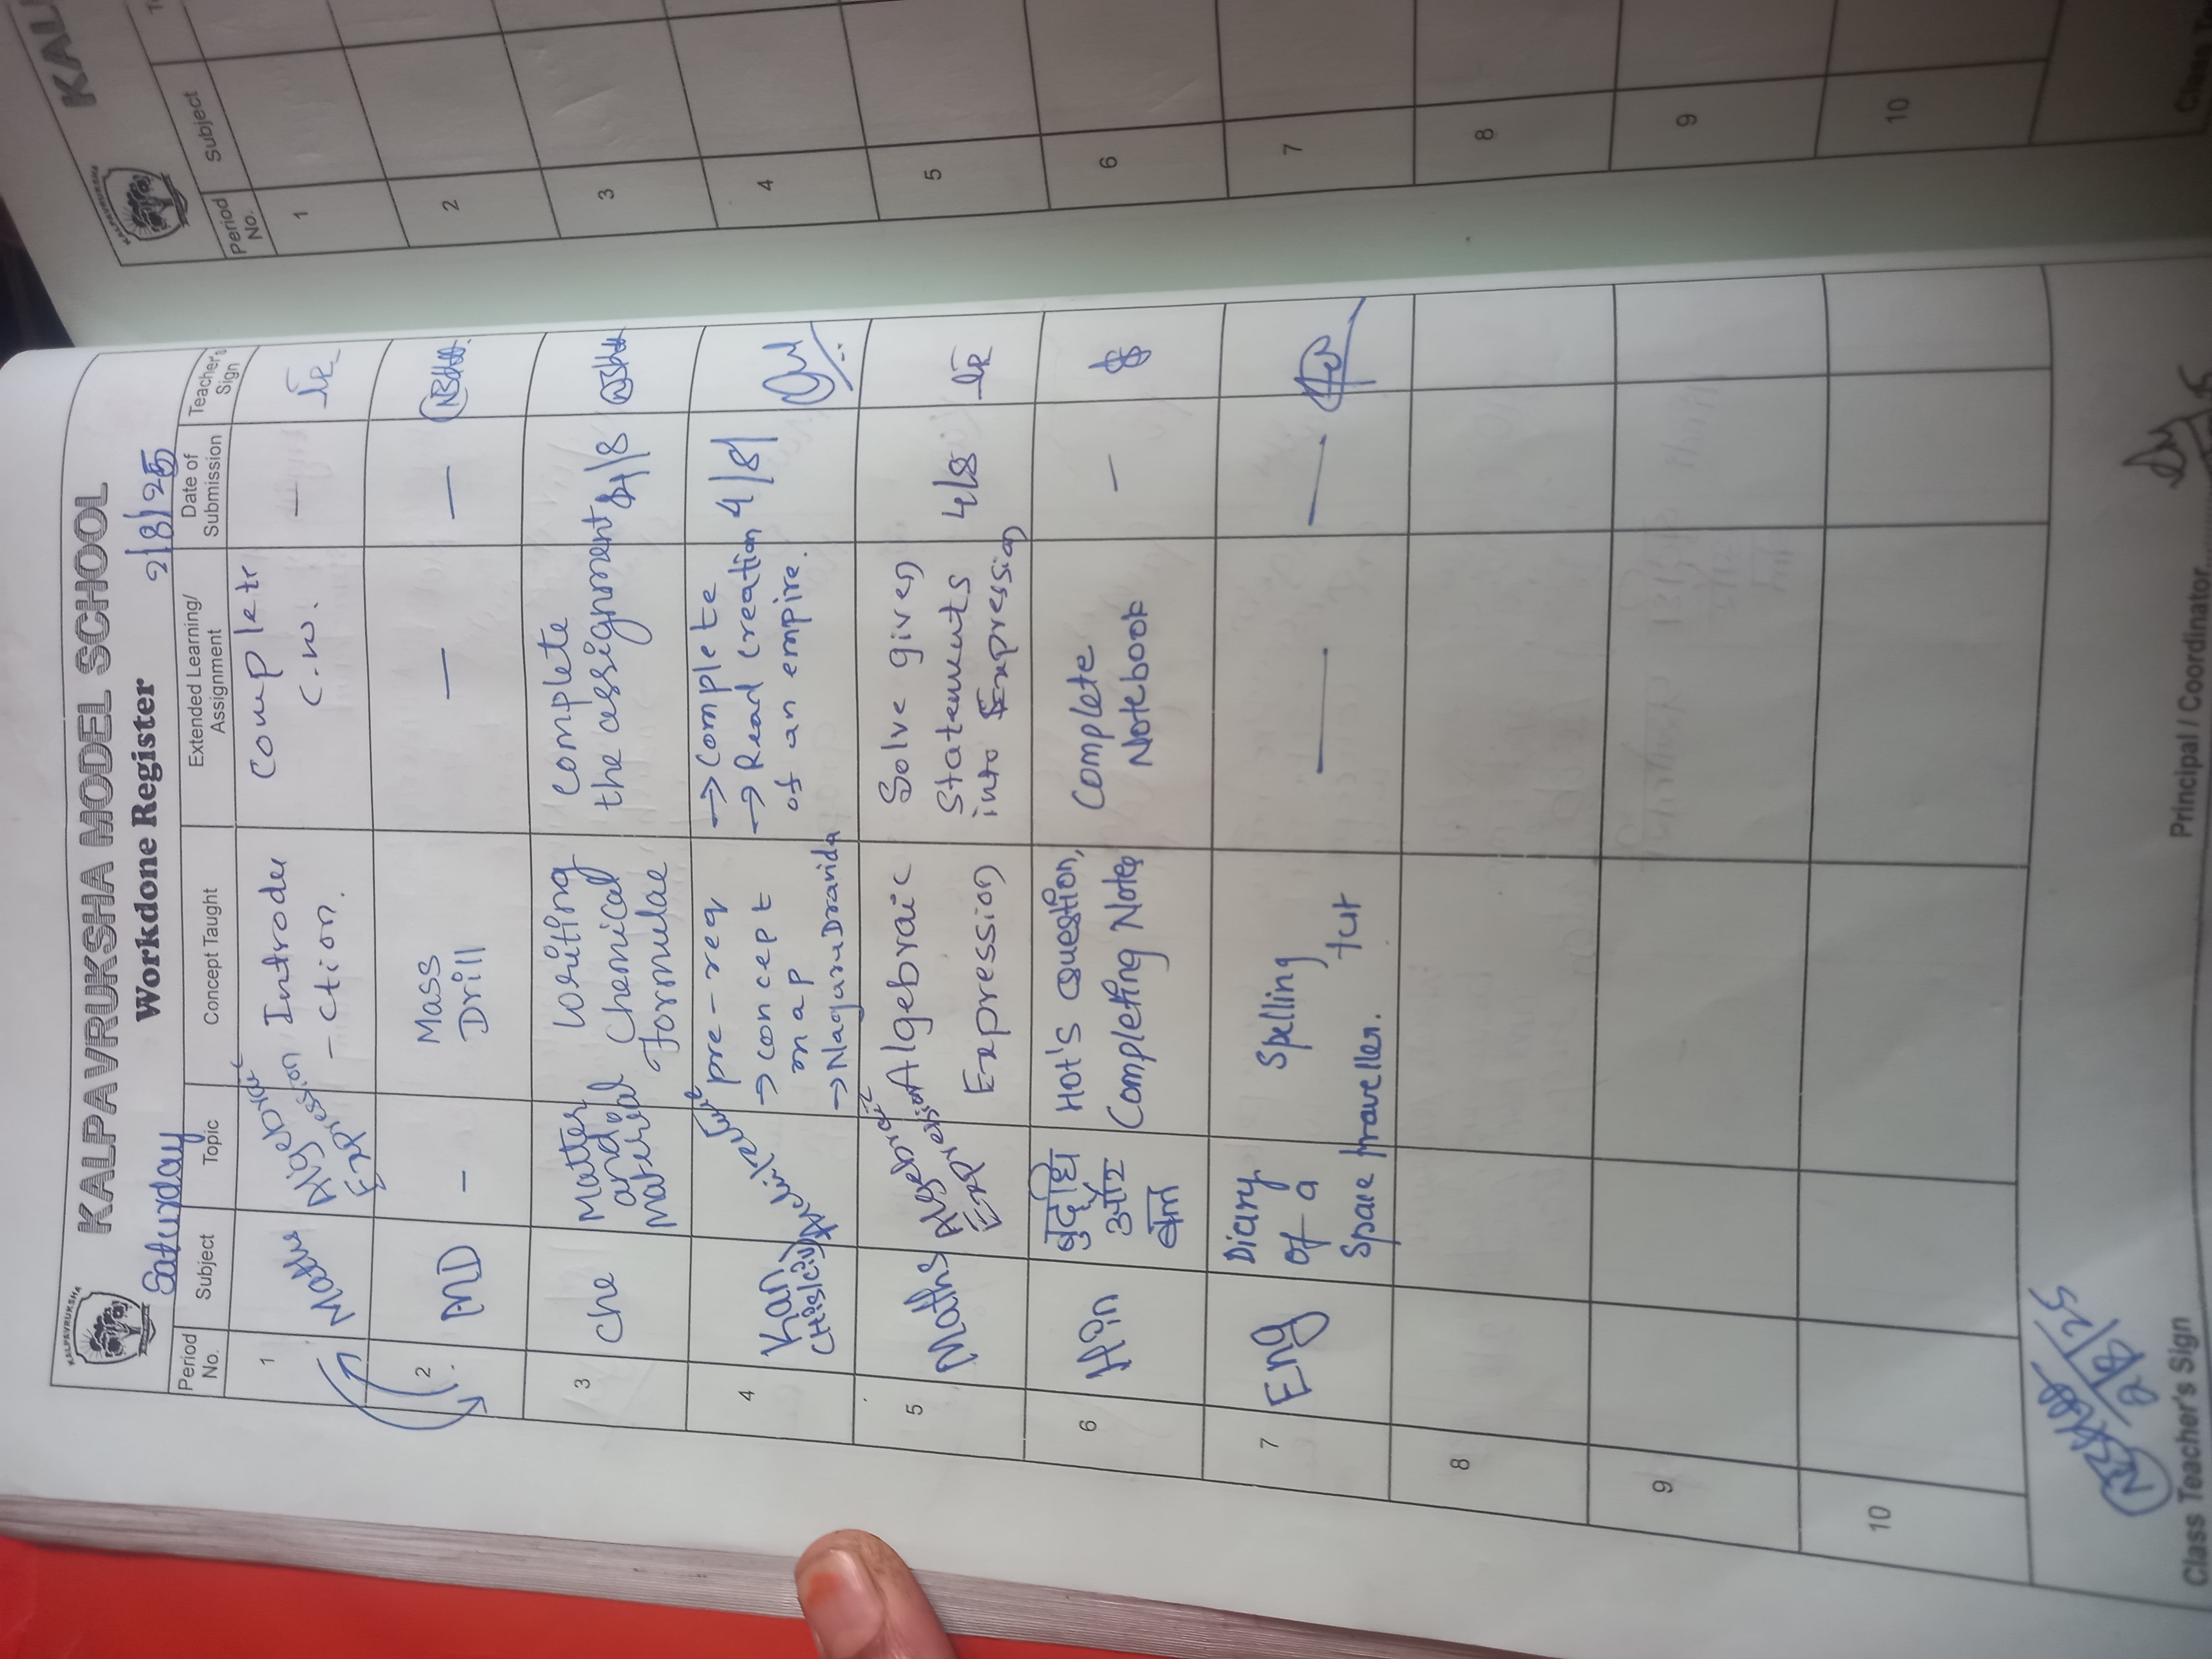 KALPAVRUKSHA
KALPAVRUKSHA MODEL SCHOOL
Workdone Register
Saturday
2/8/25
Period No.
Subject
Topic
Concept Taught
Extended Learning/ Assignment
Date of Submission
Teacher's Sign
1
Maths
Algebraic
Expression
Introdu
-ction.
Completr
C.W.
—
2
MD
-
Mass
Drill
—
—
3
Che
Matter
and
Material
Writing
Chemical
Formulae
Complete
the assignment
4/8
4
Kan
pre-req
→ concept
map
→ Nagaru Dravida
→ Complete
→ Read creation
of an empire.
4/8/
5
Maths
Algebraic
Expression
Algebraic
Expression
Solve given
Statements
into Expression
4/8
6
Hin
बुद्धि
और
बल
Hot's Question,
Completing Notes
Complete
Notebook
—
7
Eng
Diary
of a
Space traveller.
Spelling
tut
—
—
8
9
10
2/8/25
Class Teacher's Sign
Principal / Coordinator
KALPAVRUKSHA
KAL
Period No.
Subject
1
2
3
4
5
6
7
8
9
10